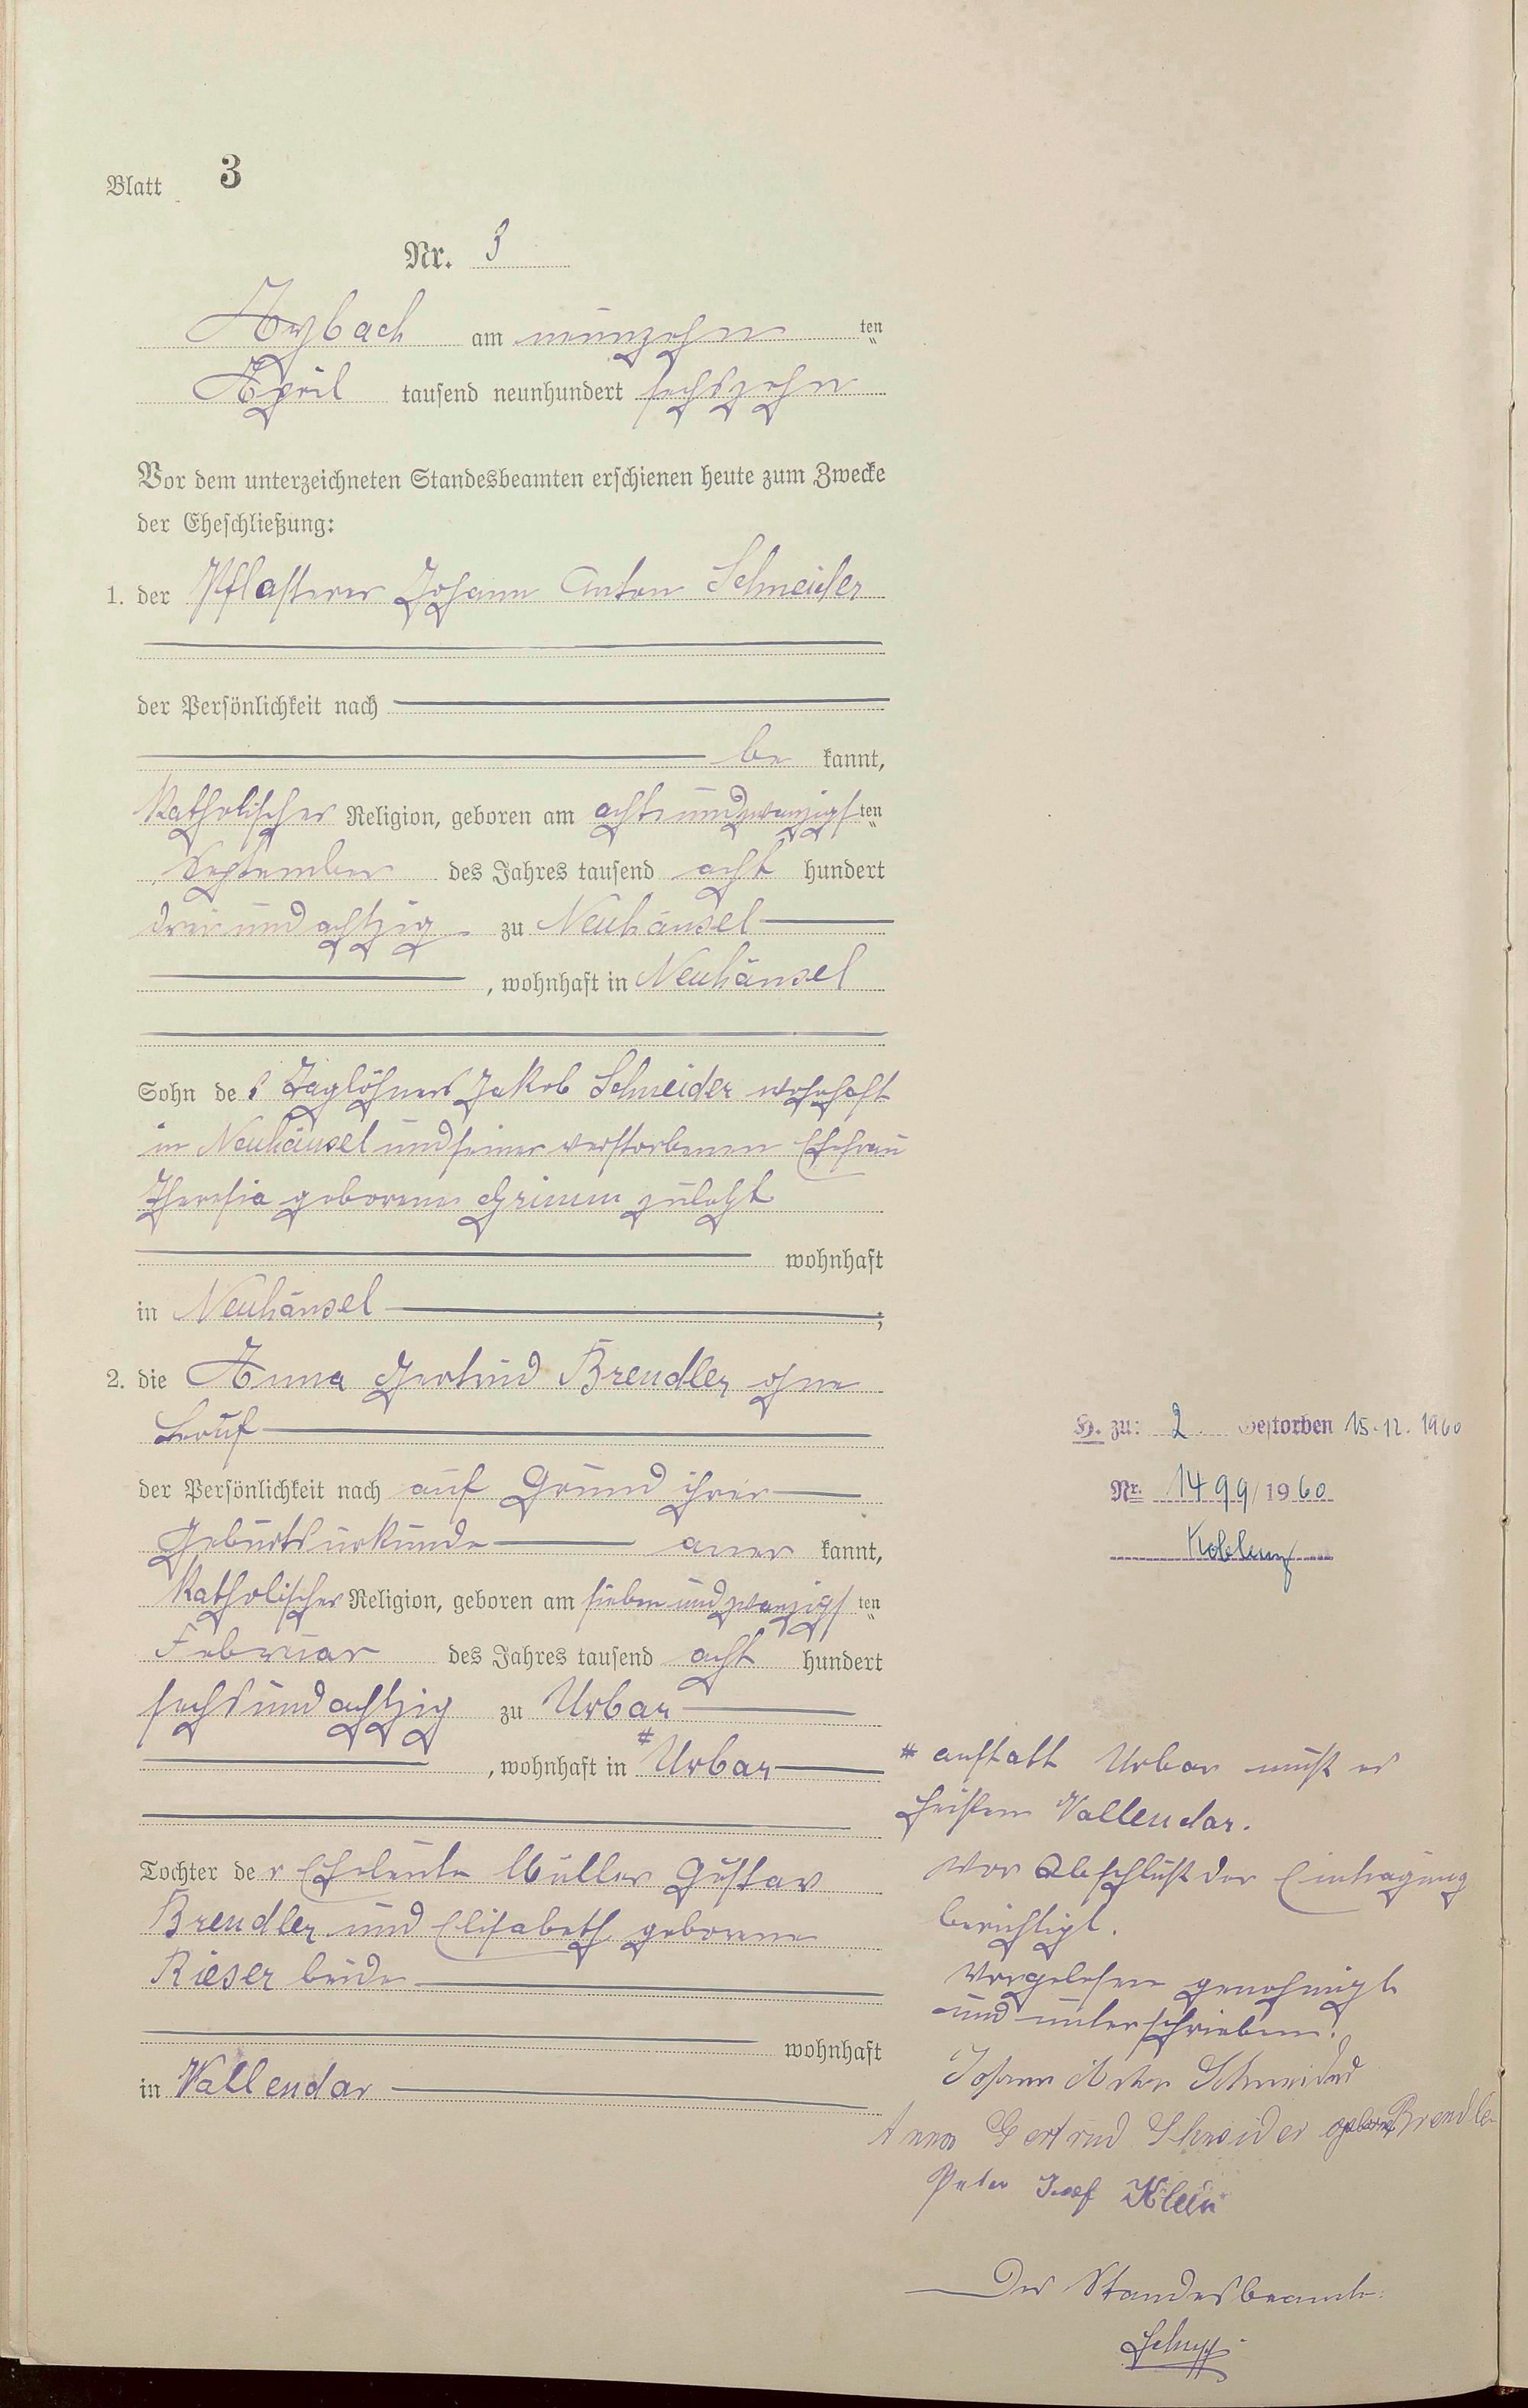 Blatt 3
Nr. 3
Arzbach am neunzehn ten
April tausend neunhundert sechszehn
Vor dem unterzeichneten Standesbeamten erschienen heute zum Zwecke
der Eheschließung:
1. der Pflasterer Johann Anton Schneider
der Persönlichkeit nach
be kannt,
katholischer Religion, geboren am acht und zwanzigsten
September des Jahres tausend acht hundert
drei und achtzig zu Neuhäusel
, wohnhaft in Neuhäusel
Sohn des Taglöhners Jakob Schneider wohnhaft
in Neuhäusel und seiner verstorbenen Ehefrau
Theresia geborene Grimm zuletzt
wohnhaft
in Neuhäusel ;
2. die Anna Gertrud Brendler ohne
Beruf
der Persönlichkeit nach auf Grund ihrer
Geburtsurkunde aner kannt,
katholischer Religion, geboren am sieben und zwanzigsten
Februar des Jahres tausend acht hundert
sechs und achtzig zu Urbar
, wohnhaft in # Urbar
Tochter der Eheleute Müller Gustav
Brendler und Elisabeth geborene
Rieser beide
wohnhaft
in Vallendar
H. zu: 2 Gestorben 15.12.1960
Nr. 1499/1960
Koblenz
# anstatt Urbar muß es
heißen Vallendar.
Vor Abschluß der Eintragung
berichtigt.
Vorgelesen genehmigt
und unterschrieben:
Johann Anton Schneider
Anna Gertrud Schneider geborne Brendler
Peter Josef Klein
Der Standesbeamte: